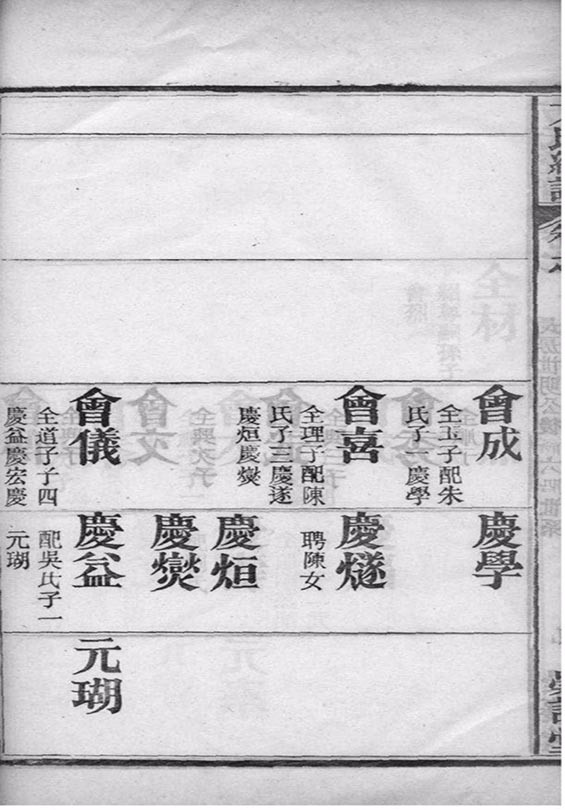 會成
全玉子配朱
氏子一慶學
會喜
全理子配陳
氏子三慶遂
慶烜慶爕
會儀
全道子子四
慶益慶宏慶
慶學
慶燧
聘陳女
慶烜
慶爕
慶益
配吳氏子一
元瑚
元瑚